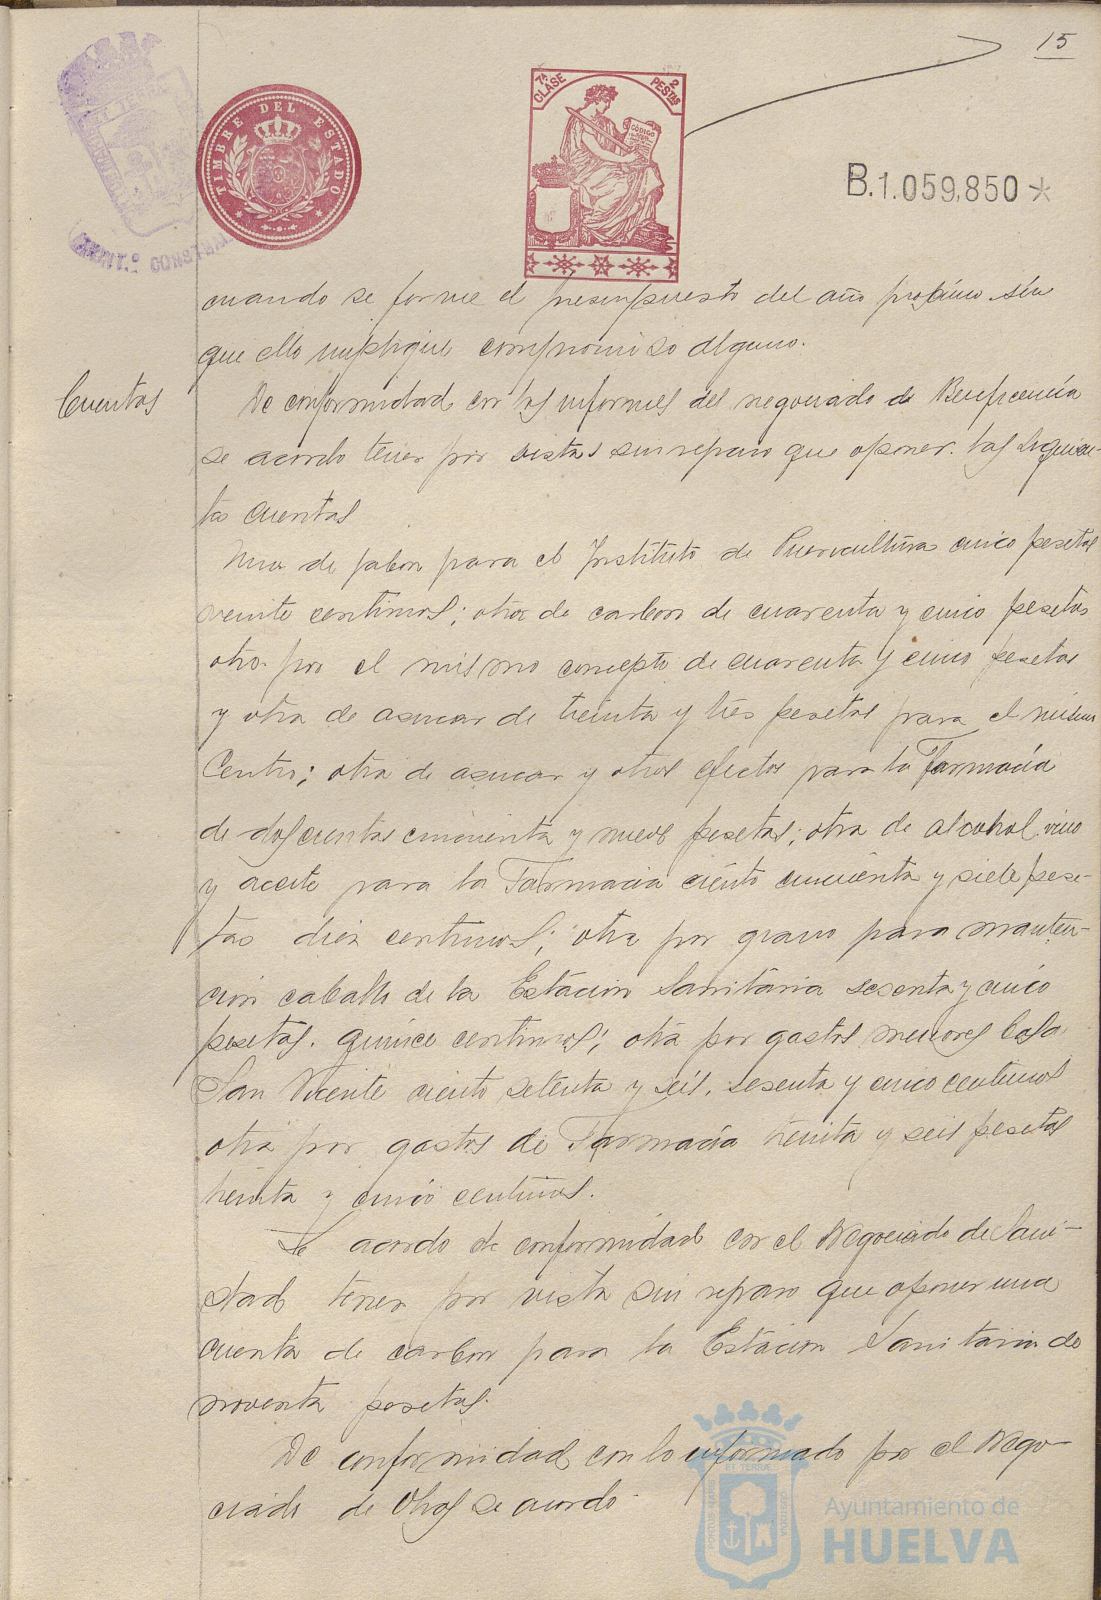 15
TIMBRE DEL ESTADO
7ª CLASE
2 PESTAS
CÓDIGO
B.1.059,850 *
AYUNT.º CONST
cuando se forme el presupuesto del año proximo sin
que ello implique compromiso alguno.
Cuentas
De conformidad con los informes del negociado de Beneficencia
se acordo tener por vistas sin reparo que oponer las siguien-
tes cuentas
Una de jabon para el Instituto de Puericultura cinco pesetas
veinte centimos; otra de carbon de cuarenta y cinco pesetas
otra por el mismo concepto de cuarenta y cinco pesetas
y otra de azucar de treinta y tres pesetas para el mismo
Centro; otra de azucar y otros efectos para la Farmacia
de doscientas cincuenta y nueve pesetas; otra de alcohol vino
y aceite para la Farmacia ciento cincuenta y siete pese-
tas diez centimos; otra por grano para manten-
cion caballo de la Estacion Sanitaria sesenta y cinco
pesetas quince centimos; otra por gastos menores Casa
San Vicente ciento setenta y seis, sesenta y cinco centimos
otra por gastos de Farmacia treinta y seis pesetas
treinta y cinco centimos.
Se acordo de conformidad con el Negociado de Sani-
dad tener por vista sin reparo que oponer una
cuenta de carbon para la Estacion Sanitaria de
noventa pesetas.
De conformidad con lo informado por el Nego-
ciado de Obras se acordo
Ayuntamiento de
HUELVA